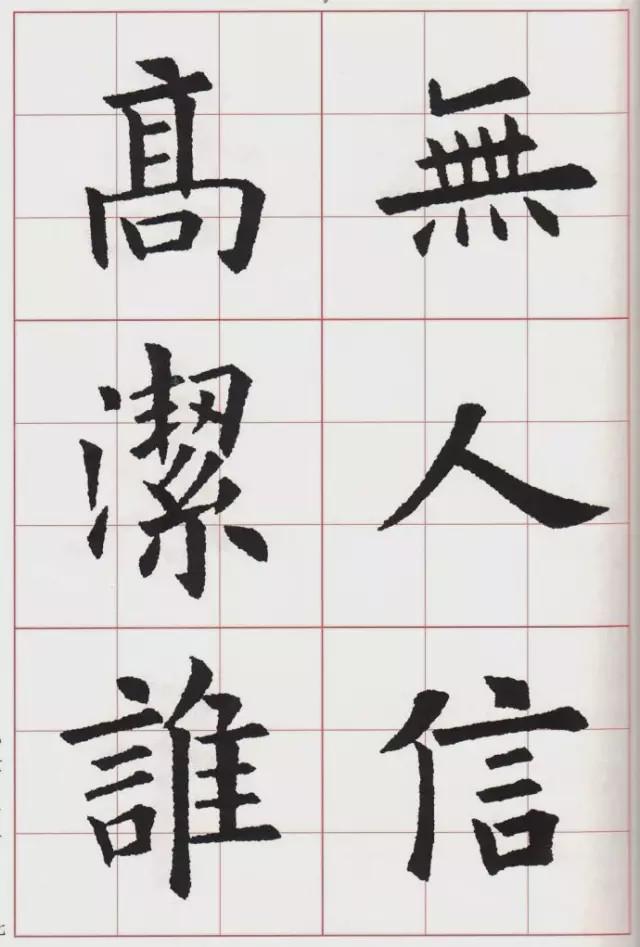 無人信
髙潔誰